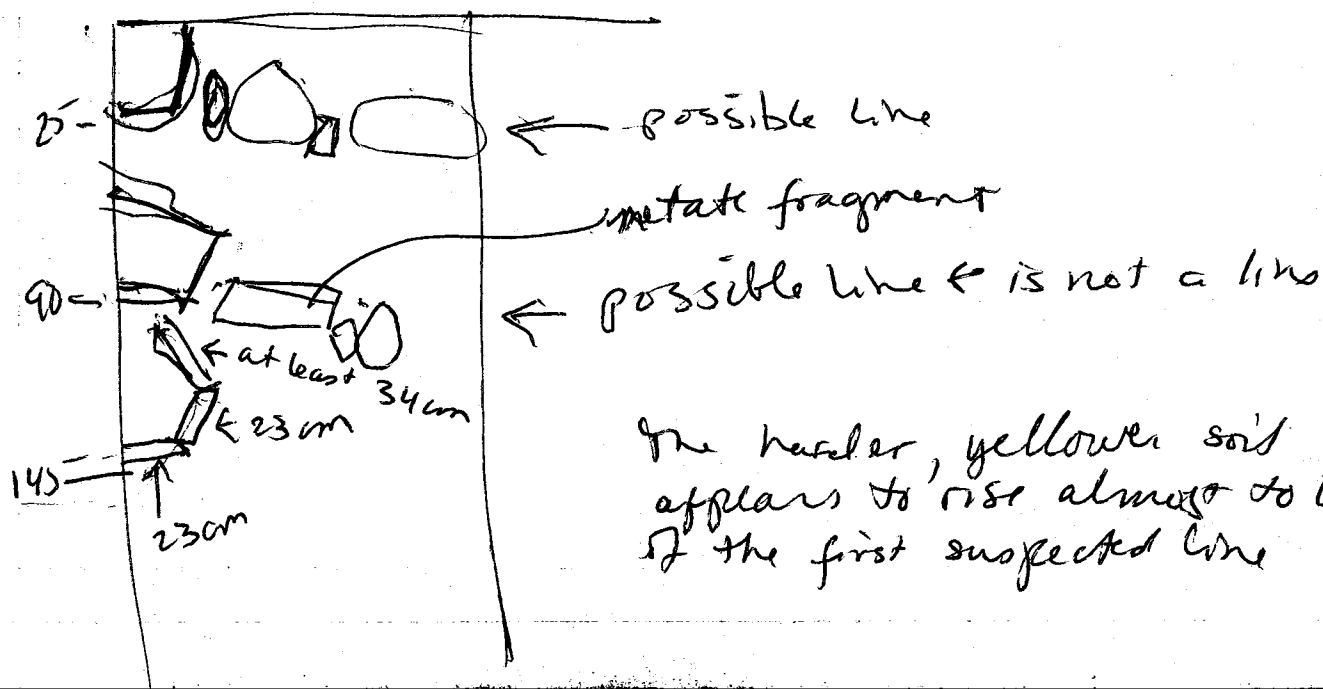 25 -
possible line
metate fragment
90
possible line ← is not a line
← at least 34 cm
← 23 cm
145
23 cm
the harder, yellower soil
appears to rise almost to
of the first suspected line